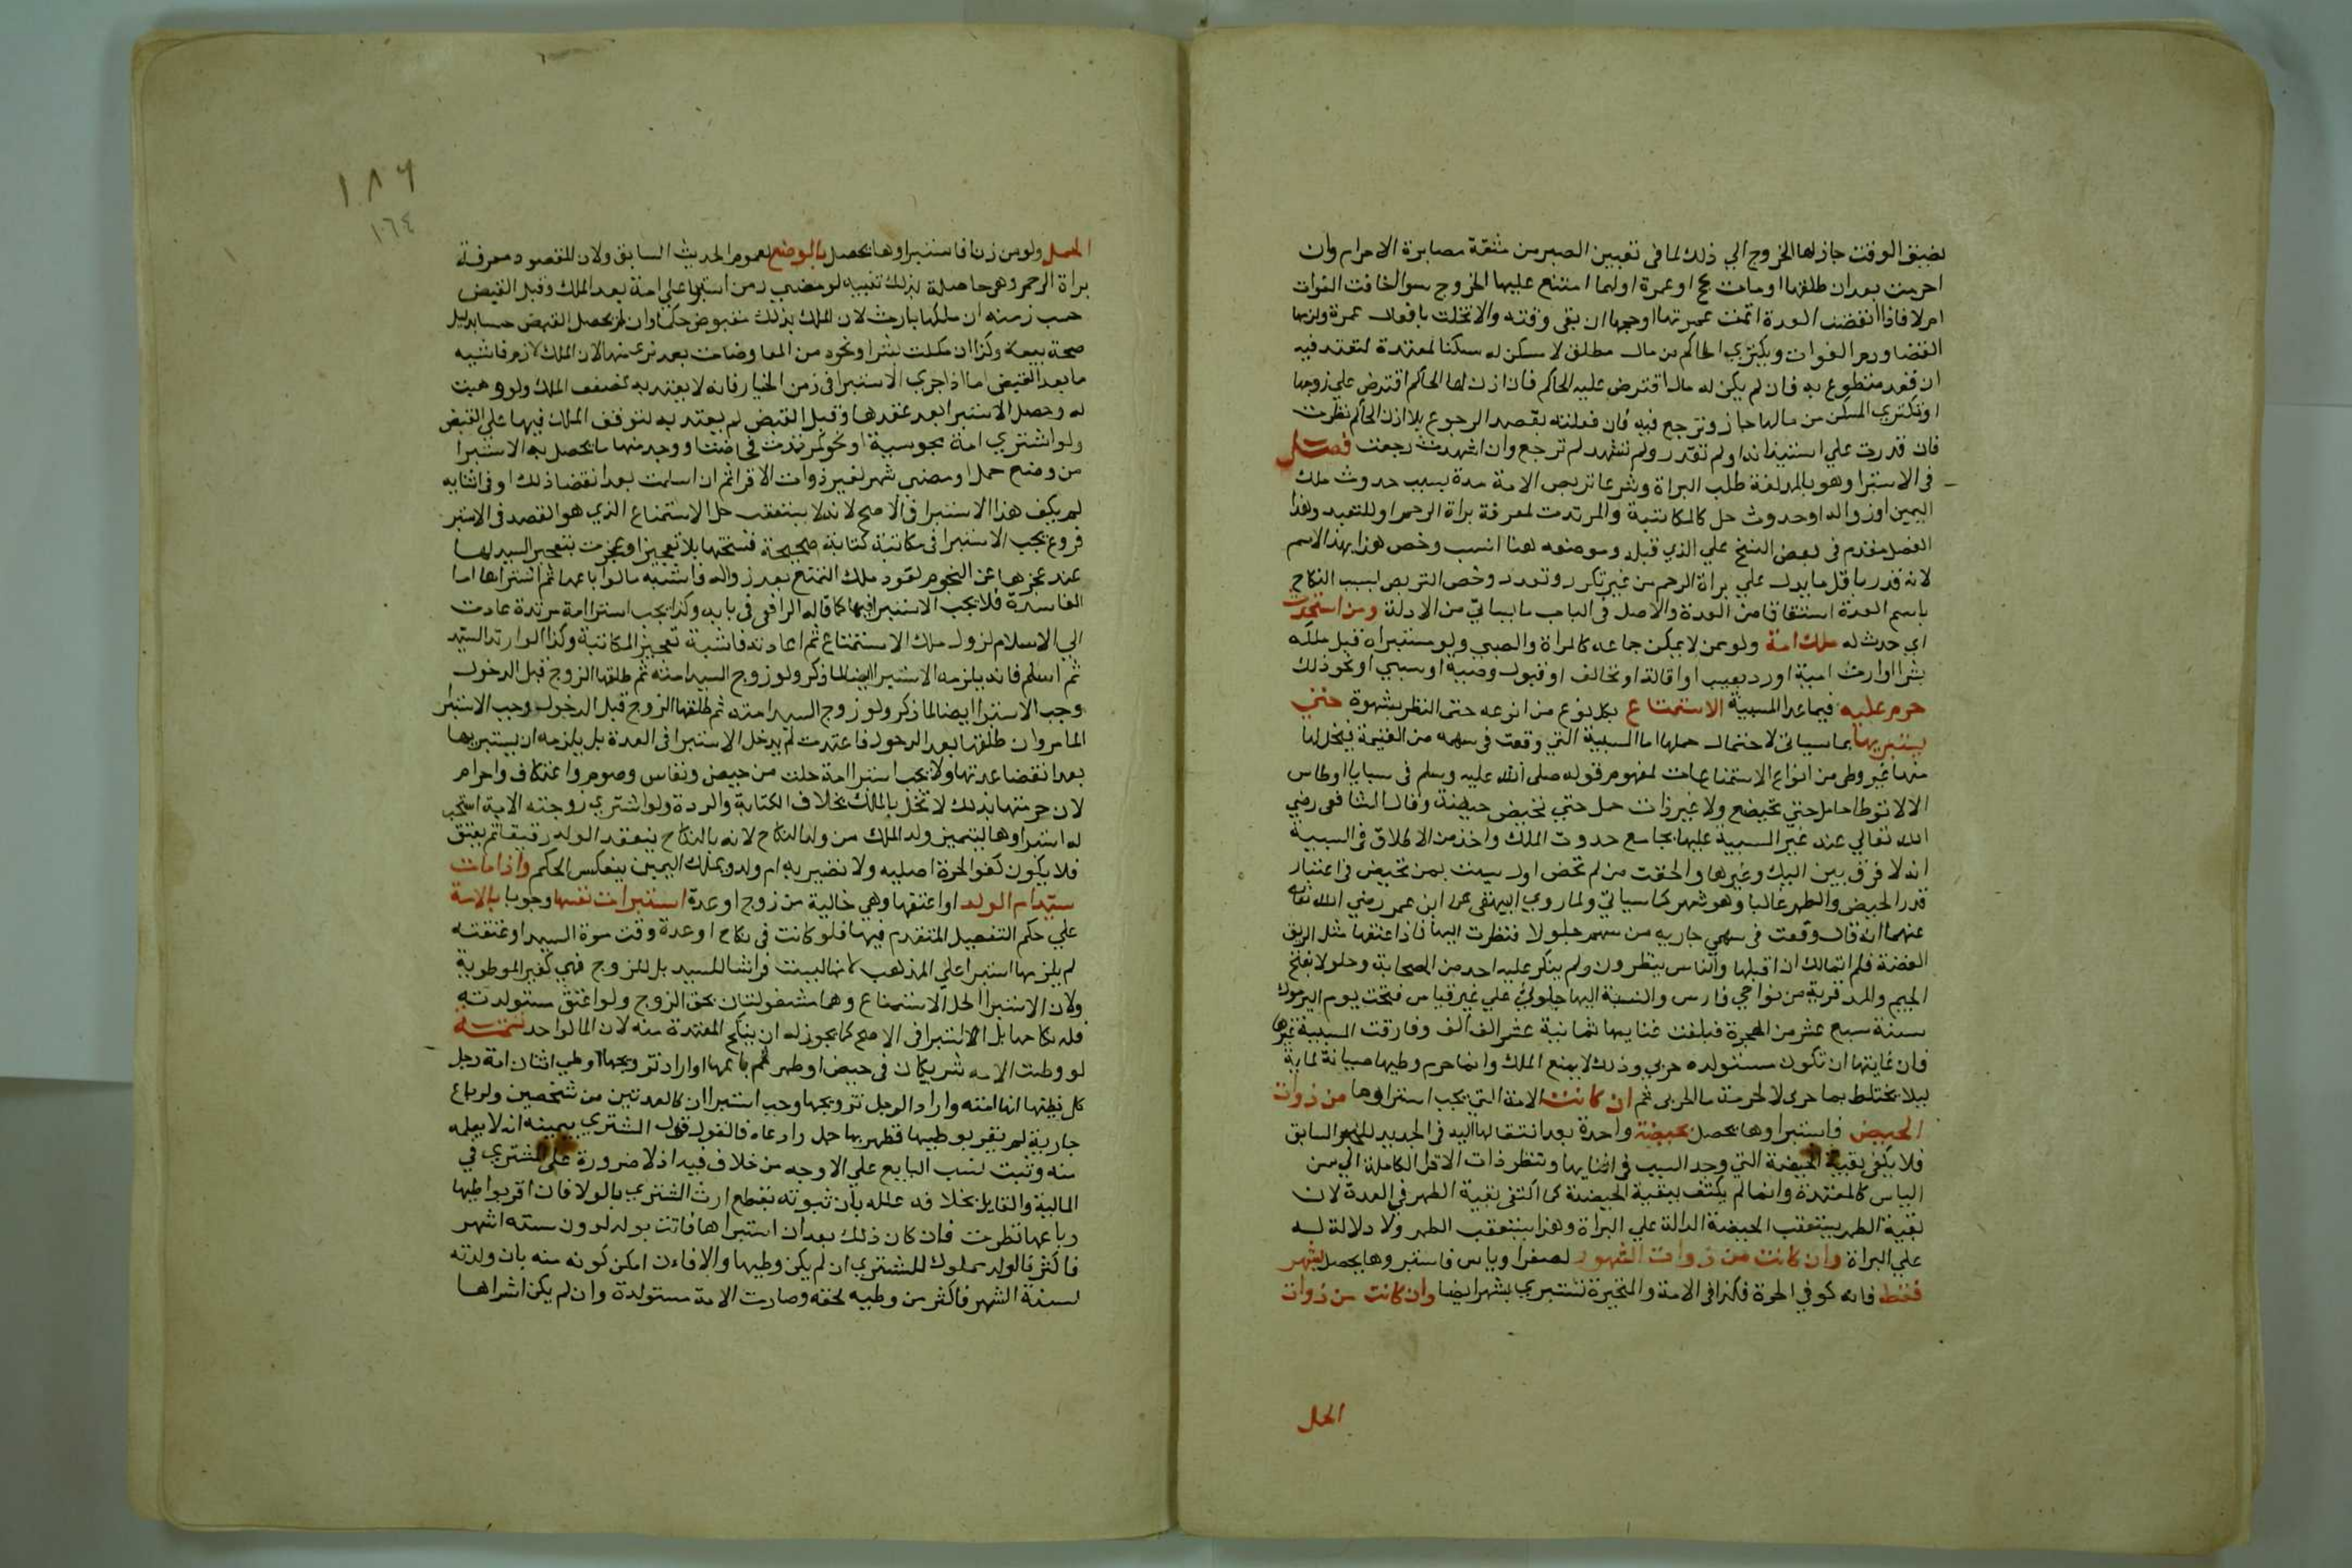 لضيق الوقت جاز لها الخروج الي ذلك لما في تعيين الصبر من مشقة مصابرة الاحرام وان
احرمت بعد ان طلقها او مات بحج او عمرة او لهما امتنع عليها الخروج سوا اخافت الفوات
ام لا فاذا انقضت العدة اتمت عمرتها او حجها ان بقي وقته والا تحللت بافعال عمرة ولزمها
القضا ودم الفوات ويكتري الحاكم من مال مطلق لا مسكن له مسكنا لمعتدة لتعتد فيه
ان فقد متطوع به فان لم يكن له مال اقترض عليه الحاكم فان اذن لها الحاكم اقترض علي زوجها
او تكتري المسكن من مالها جاز وترجع فيه فان فعلته بقصد الرجوع بلا اذن الحاكم نظرت
فان قدرت علي استيذانه او لم تقدر ولم تشهد لم ترجع وان اشهدت رجعت فصل
في الاستبرا وهو بالمد لغة طلب البراة وشرعا تربص الامة مدة بسبب حدوث ملك
اليمين او زواله او حدوث حل كالمكاتبة والمرتدت لمعرفة براة الرحم او للتعبد وهذا
الفصل مقدم في بعض النسخ علي الذي قبله وموضعه هنا انسب وخص هذا بهذا الاسم
لانه قدر باقل ما يدل علي براة الرحم من غير تكرر وتعدد وخص التربص لسبب النكاح
باسم العدة اشتقاقا من العدد والاصل في الباب ما ياتي من الادلة ومن استحدث
اي حدث له ملك امة ولو ممن لا يمكن جماعه كالمراة والصبي ولو مستبراة قبل ملكه
بشرا او ارث او هبة او رد بعيب او اقالة او تحالف او قبول وصية او سبي او نحو ذلك
حرم عليه فيما عدا المسبية الاستمتاع بكل نوع من انوعه حتى النظر بشهوة حتي
يستبريها بما سياتي لاحتمال حملها اما المسبية التي وقعت في سهمه من الغنيمة فيحل له
منها غير وطي من انواع الاستمتاعات لمفهوم قوله صلى الله عليه وسلم في سبايا اوطاس
الا لا توطا حامل حتي تضع ولا غير ذات حمل حتي تحيض حيضة وقال الشافعي رضي
الله تعالي عنه غير المسبية عليها بجامع حدوث الملك واخذ من الاطلاق في المسبية
انه لا فرق بين البكر وغيرها والحقت من لم تحض او ايست بمن تحيض في اعتبار
قدر الحيض والطهر غالبا وهو شهر كما سياتي ولما روي البيهقي عن ابن عمر رضي الله تعالى
عنهما انه قال وقعت في سهمي جارية من سهم جلولا فنظرت اليها فاذا عنقها مثل ابريق
الفضة فلم اتمالك ان اقبلها والناس ينظرون ولم ينكر عليه احد من الصحابة وجلولا بفتح
الجيم والمد قرية من نواحي فارس والنسبة اليها جلولي علي غير قياس فتحت يوم اليرموك
سنة سبع عشر من الهجرة فبلغت غنايمها ثمانية عشر الف الف وفارقت المسبية غيرها
فان غايتها ان تكون مستولدة حربي وذلك لا يمنع الملك وانما حرم وطيها صيانة لمايه
ليلا يختلط بما حربي لا لحرمة ما الحربي ثم ان كانت الامة التي يجب استبراوها من ذوات
الحيض فاستبراوها يحصل بحيضة واحدة بعد انتقالها اليه في الجديد للخبر السابق
فلا يكفي بقية الحيضة التي وجد السبب في اثنايها وتنتظر ذات الاقرا الكاملة الي سن
الياس كالمعتدة وانما لم يكتف ببقية الحيضة كما اكتفي بقية الطهر في العدة لان
بقية الطهر يستعقب الحيضة الدالة علي البراة وهذا يستعقب الطهر ولا دلالة له
علي البراة وان كانت من ذوات الشهور لصغر او ياس فاستبروها يحصل بشهر
فقط فانه كقرء في الحرة فكذا في الامة والمتحيرة تستبري بشهر ايضا وان كانت من ذوات
الحمل
١٨٦
١٠٦٤
الحمل ولو من زنا فاستبراوها يحصل بالوضع لعموم الحديث السابق ولان المقصود معرفة
براة الرحم وهي حاصلة بذلك تنبيه لو مضي زمن استبرا علي امة بعد الملك وقبل القبض
حسب زمنه ان ملكها بارث لان الملك بذلك مقبوض حكما وان لم يحصل القبض حسا بدليل
صحة بيعه وكذا ان ملكت بشرا ونحوه من المعاوضات بعد لزومها لان الملك لازم فاشبه
ما بعد القبض اما اذا جري الاستبرا في زمن الخيار فانه لا يعتد به لضعف الملك ولو وهبت
له وحصل الاستبرا بعد عقدها وقبل القبض لم يعتد به لتوقف الملك فيها علي القبض
ولو اشتري امة مجوسية او نحو مرتدة فحاضت او وجد منها ما يحصل به الاستبرا
من وضع حمل او مضي شهر لغير ذوات الاقرا ثم ان اسلمت بعد انقضا ذلك او في اثنايه
لم يكف هذا الاستبرا في الاصح لانه لا يستعقب حل الاستمتاع الذي هو القصد في الاستبرا
فروع يجب الاستبرا في مكاتبة كتابة صحيحة فسختها بلا تعجيز او عجزت بتعجيز السيد لها
عند عجزها عن النجوم لعود ملك التمتع بعد زواله فاشبه ما لو باعها ثم اشتراها اما
الفاسدة فلا يجب الاستبرا فيها كما قاله الرافعي في بابه وكذا يجب استبرا امة مرتدة عادت
الي الاسلام لزوال ملك الاستمتاع ثم اعادته فاشبه تعجيز المكاتبة وكذا لو ارتد السيد
ثم اسلم فانه يلزمه الاستبرا ايضا لما ذكر ولو زوج السيد امته ثم طلقها الزوج قبل الدخول
وجب الاستبرا ايضا لما ذكر ولو زوج السيد امته ثم طلقها الزوج قبل الدخول وجب الاستبرا
لما مر وان طلقها بعد الدخول فاعتدت لم يدخل الاستبرا في العدة بل يلزمه ان يستبريها
بعد انقضا عدتها ولا يجب استبرا امة حلت من حيض ونفاس وصوم واعتكاف واحرام
لان حرمتها بذلك لا تخل بالملك بخلاف الكتابة والردة ولو اشتري زوجته الامة استحب
له استبراوها ليتميز ولد الملك من ولد النكاح لانه بالنكاح ينعقد الولد رقيقا ثم يعتق
فلا يكون كفو الحرة اصلية ولا تصير به ام ولد وبملك اليمين ينعكس الحكم واذا مات
سيد ام الولد او اعتقها وهي خالية من زوج او عدة استبرات نفسها وجوبا بالامة
علي حكم التفصيل المتقدم فيها فلو كانت في نكاح او عدة وقت موت السيد او عتقه
لم يلزمها استبرا علي المذهب لانها ليست فراشا للسيد بل للزوج فهي كغير الموطوية
ولان الاستبرا لحل الاستمتاع وهما مشغولتان بحق الزوج ولو اعتق مستولدته
فله نكاحها بلا استبرا في الاصح كما يجوز له ان ينكح المعتدة منه لان الما لواحد تتمة
لو وطئت الامه شريكان في حيض او طهر ثم باعها او ارادا تزويجها او وطي اثنان امة رجل
كل يظنها انها امته واراد الرجل تزويجها وجب استبراان كالعدتين من شخصين ولو باع
جارية لم يقر بوطيها فظهر بها حمل وادعاه فالقول قول المشتري بيمينه انه لا يعلمه
منه وثبت نسب البايع علي الاوجه من خلاف فيه اذ لا ضرورة على المشتري في
المالية والقايل بخلافه علله بان ثبوته يقطع ارث المشتري بالولا فان اقر بوطيها
وباعها نظرت فان كان ذلك بعد ان استبراها فاتت بولد لدون ستة اشهر
فاكثر فالولد مملوك للمشتري ان لم يكن وطيها والا فان امكن كونه منه بان ولدته
لستة اشهر فاكثر من وطيه لحقه وصارت الامة مستولدة وان لم يكن اشتراها